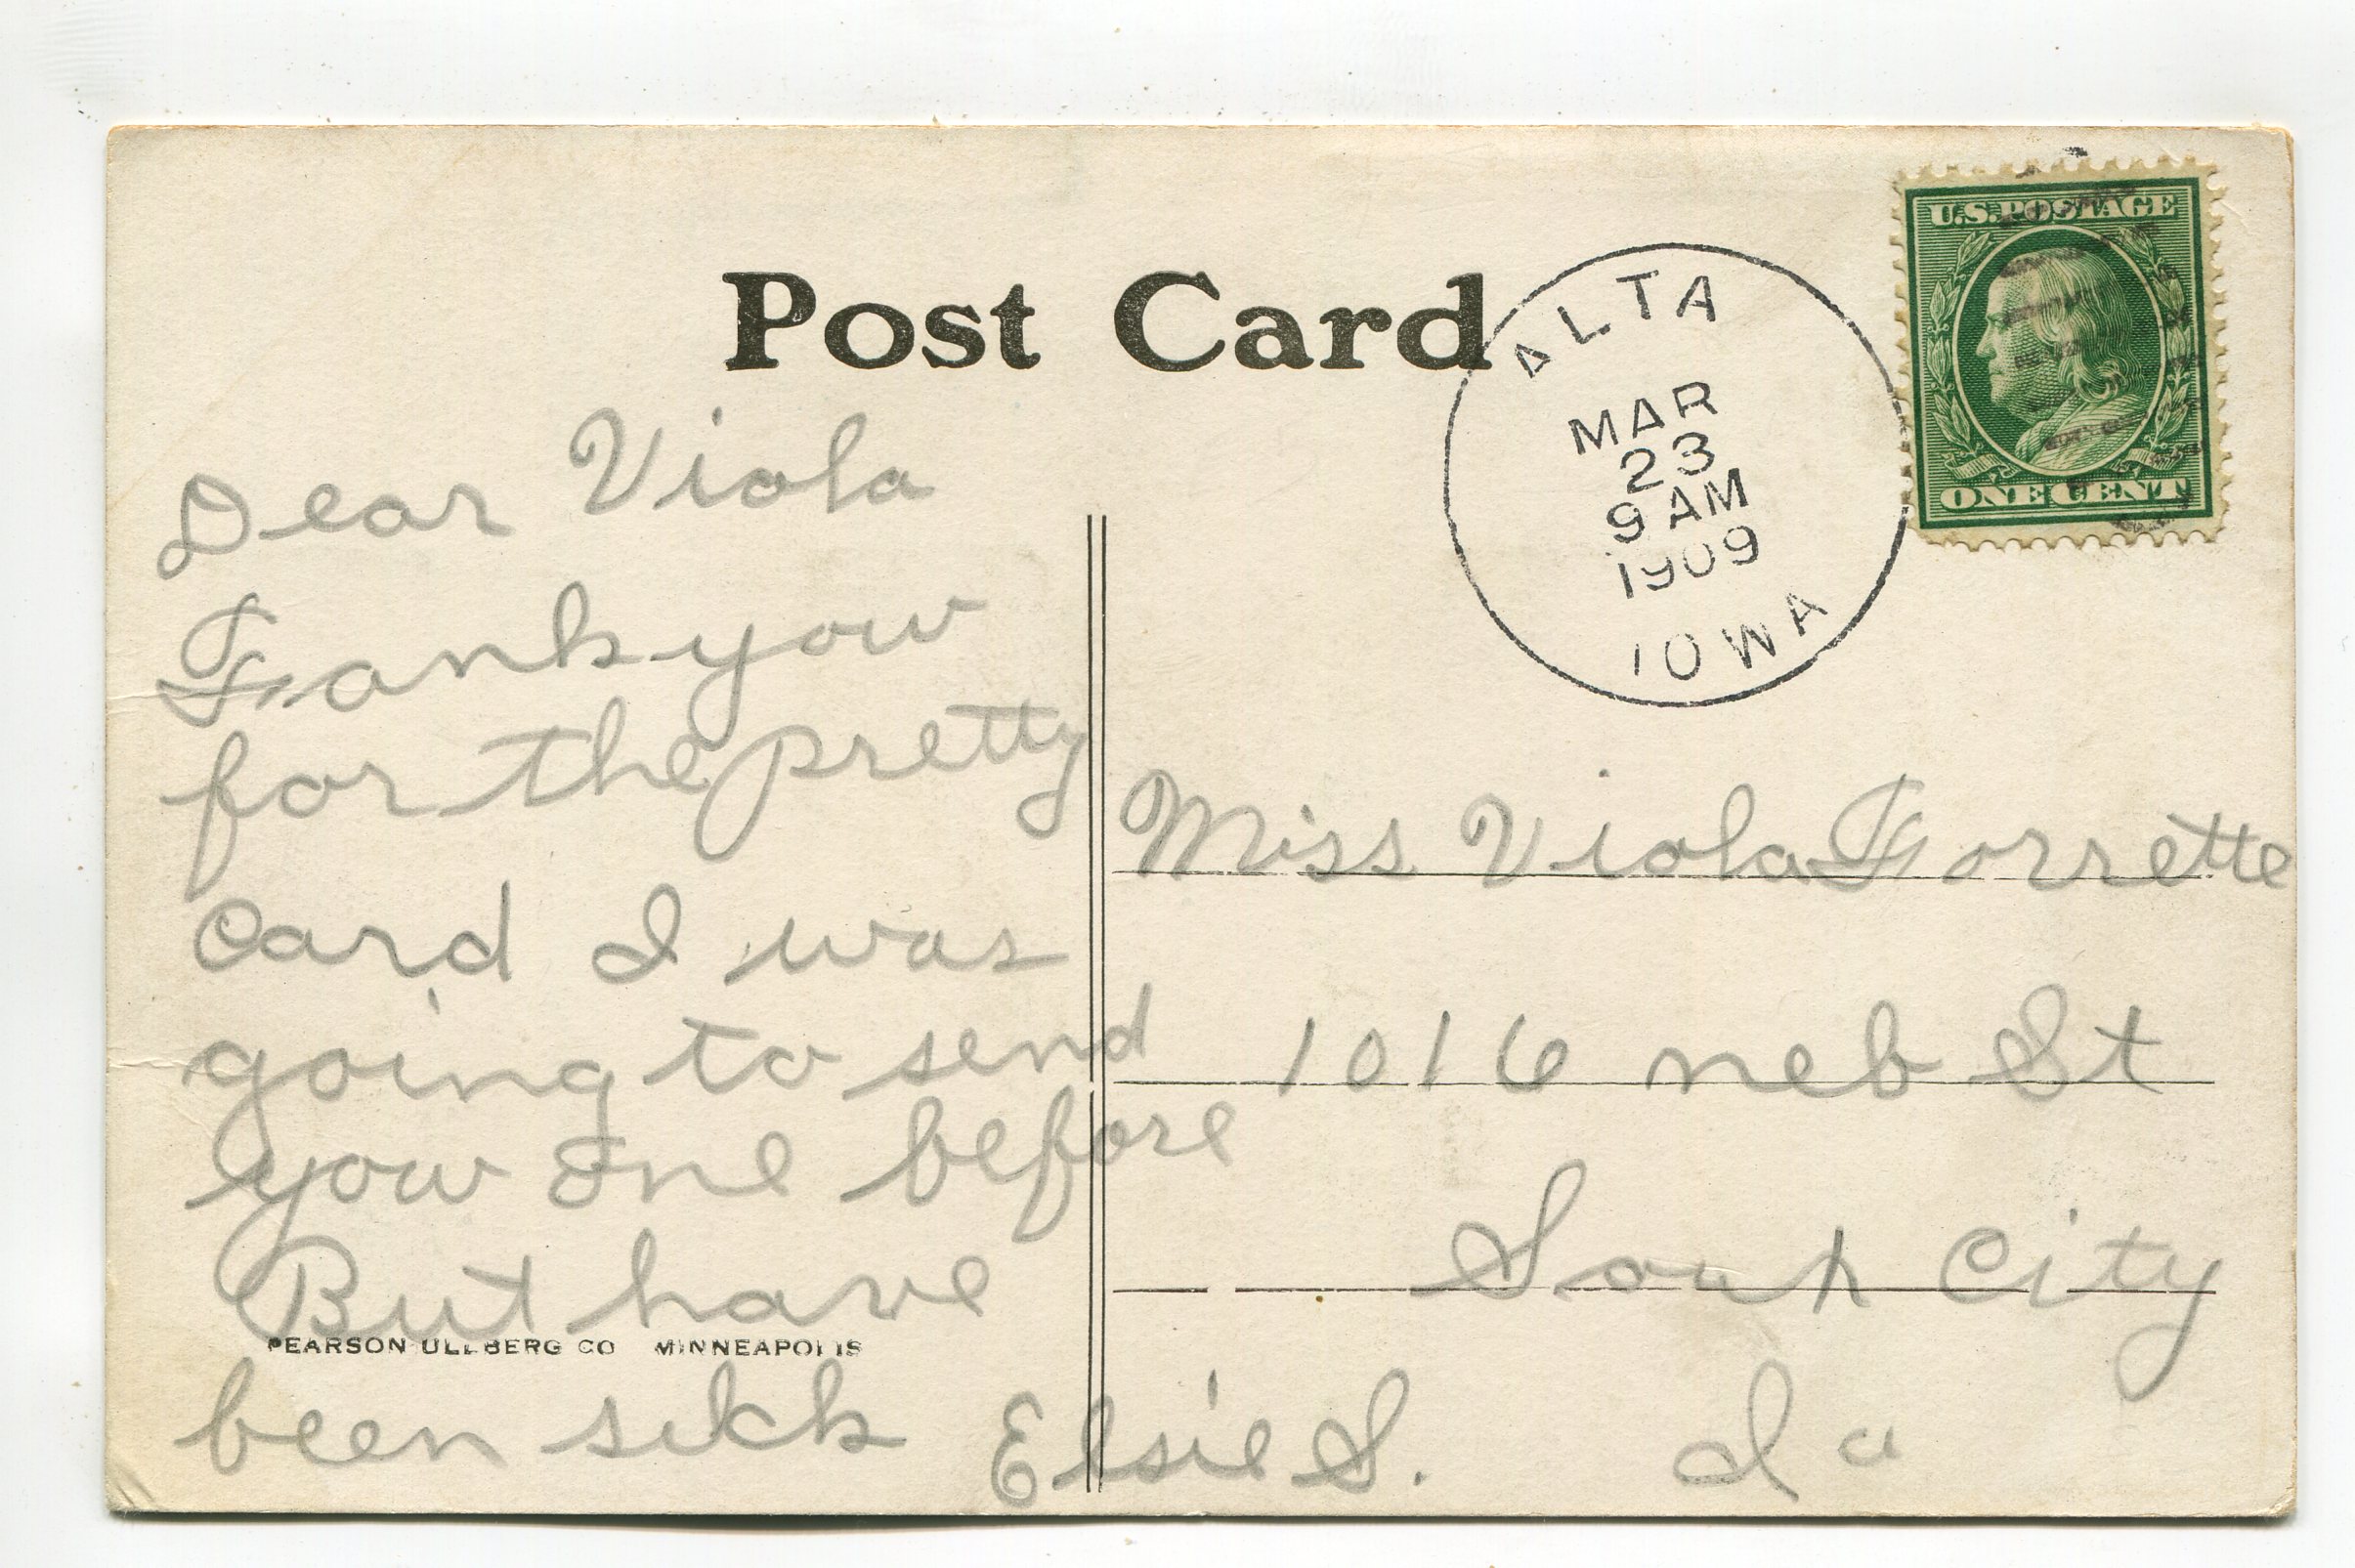 Post Card
ALTA
MAR
23
9 AM
1909
IOWA
U.S. POSTAGE
ONE CENT
Dear Viola
Tank you
for the pretty
card I was
going to send
you one before
But have
been sick Elsie S.
Miss Viola Forrette
1016 neb St
Soux City
Ia
PEARSON ULLBERG CO MINNEAPOLIS